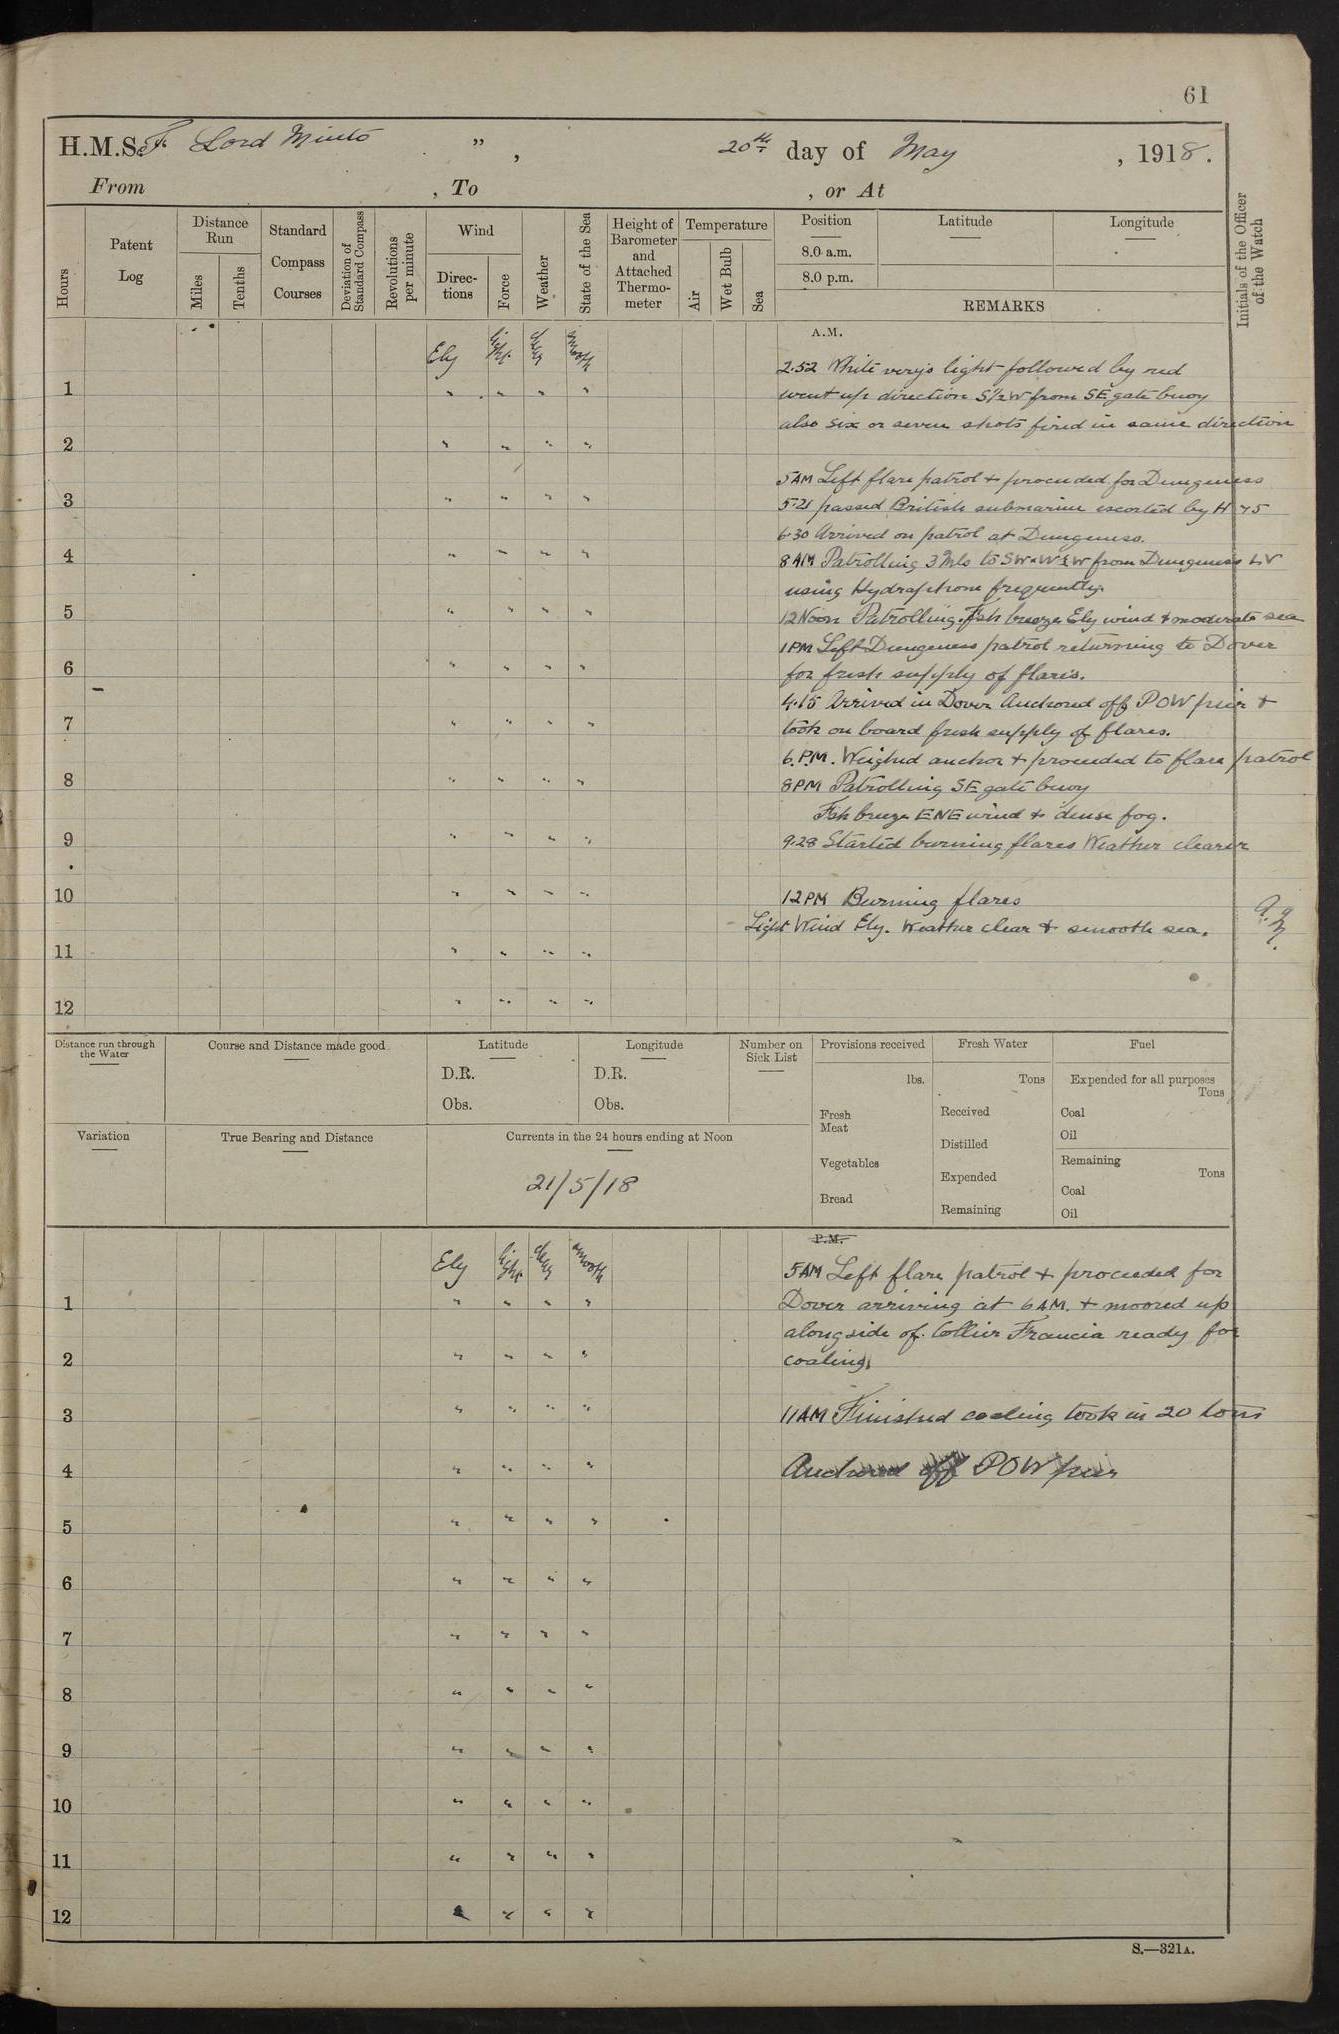 61
H.M.S. T. Lord Minto " , 20th day of May , 1918.
From , To , or At
Hours
Patent Log
Distance Run
Miles
Tenths
Standard Compass Courses
Deviation of Standard Compass
Revolutions per minute
Wind
Direc-tions
Force
Weather
State of the Sea
Height of Barometer and Attached Thermo-meter
Temperature
Air
Wet Bulb
Sea
Position
8.0 a.m.
8.0 p.m.
Latitude
Longitude
REMARKS
Initials of the Officer of the Watch
A.M.
Ely Light Smooth
2.52 White verys light followed by red
1 " " " "
went up direction S½W from SE gate buoy
also six or seven shots fired in same direction
2 " " " "
5AM Left flare patrol & proceeded for Dungeness
3 " " " "
5.21 passed British submarine escorted by H 75
6.30 Arrived on patrol at Dungeness.
4 " " " "
8AM Patrolling 3 Mls to SW & W from Dungeness LV
using Hydrophone frequently.
5 " " " "
12 Noon Patrolling. Fsh breeze Ely wind & moderate sea
1PM Left Dungeness patrol returning to Dover
6 " " " "
for fresh supply of flares.
4.15 Arrived in Dover Anchored off POW pier &
7 " " " "
took on board fresh supply of flares.
6.P.M. Weighed anchor & proceeded to flare patrol
8 " " " "
8PM Patrolling SE gate buoy
Fsh breeze ENE wind & dense fog.
9 " " " "
9.28 Started burning flares Weather clearer
10 " " " "
12PM Burning flares
Light Wind Ely. Weather clear & smooth sea.
11 " " " "
12 " " " "
Distance run through the Water
Course and Distance made good
Latitude
D.R.
Obs.
Longitude
D.R.
Obs.
Number on Sick List
Provisions received
lbs.
Fresh Meat
Vegetables
Bread
Fresh Water
Tons
Received
Distilled
Expended
Remaining
Fuel
Expended for all purposes
Tons
Coal
Oil
Remaining
Tons
Coal
Oil
Variation
True Bearing and Distance
Currents in the 24 hours ending at Noon
21/5/18
P.M.
Ely Light Smooth
5AM Left flare patrol & proceeded for
1 " " " "
Dover arriving at 6AM. & moored up
alongside of Collier Francia ready for
2 " " " "
coaling.
3 " " " "
11AM Finished coaling took in 20 tons
4 " " " "
Anchored off POW pier
5 " " " "
6 " " " "
7 " " " "
8 " " " "
9 " " " "
10 " " " "
11 " " " "
12 " " " "
S.—321A.